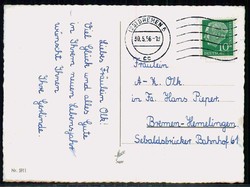 Liebes Fräulein Olk!
Viel Glück und alles Gute
in Ihrem neuen Lebensjahr
wünscht Ihnen
Ihre Gerlinde
BREMEN
cc
10
Fräulein
A- K. Olk
in Fa. Hans Pieper
Bremen-Hemelingen
Sebaldsbrücker Bahnhof